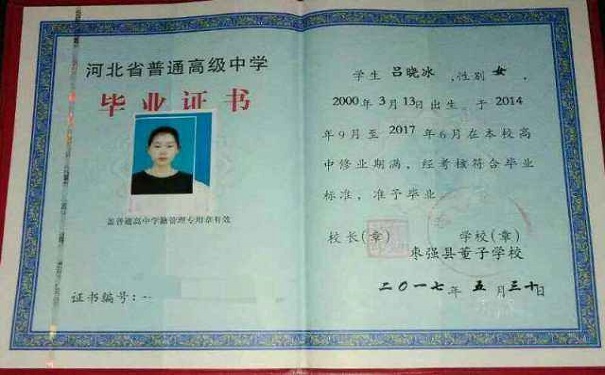 河北省普通高级中学
毕业证书
盖普通高中学籍管理专用章有效
证书编号：
学生 吕晓冰 ,性别 女 ,
2000年3月13日出生。于 2014
年9月至 2017 年6月在本校高
中修业期满，经考核符合毕业
标准，准予毕业
校长(章) 学校(章)
枣强县董子学校
二〇一七年 五 月三十日